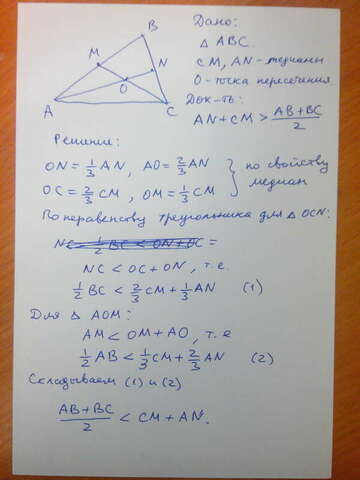 B
M
N
O
A
C
Дано:
△ ABC.
CM, AN - медианы
O - точка пересечения.
Док-ть:
AN + CM > (AB + BC)/2
Решение:
ON = 1/3 AN, AO = 2/3 AN
OC = 2/3 CM, OM = 1/3 CM
} по свойству медиан
По неравенству треугольника для △ OCN:
NC < OC + ON, т.е.
1/2 BC < 2/3 CM + 1/3 AN (1)
Для △ AOM:
AM < OM + AO, т.е
1/2 AB < 1/3 CM + 2/3 AN (2)
Складываем (1) и (2)
(AB + BC)/2 < CM + AN.